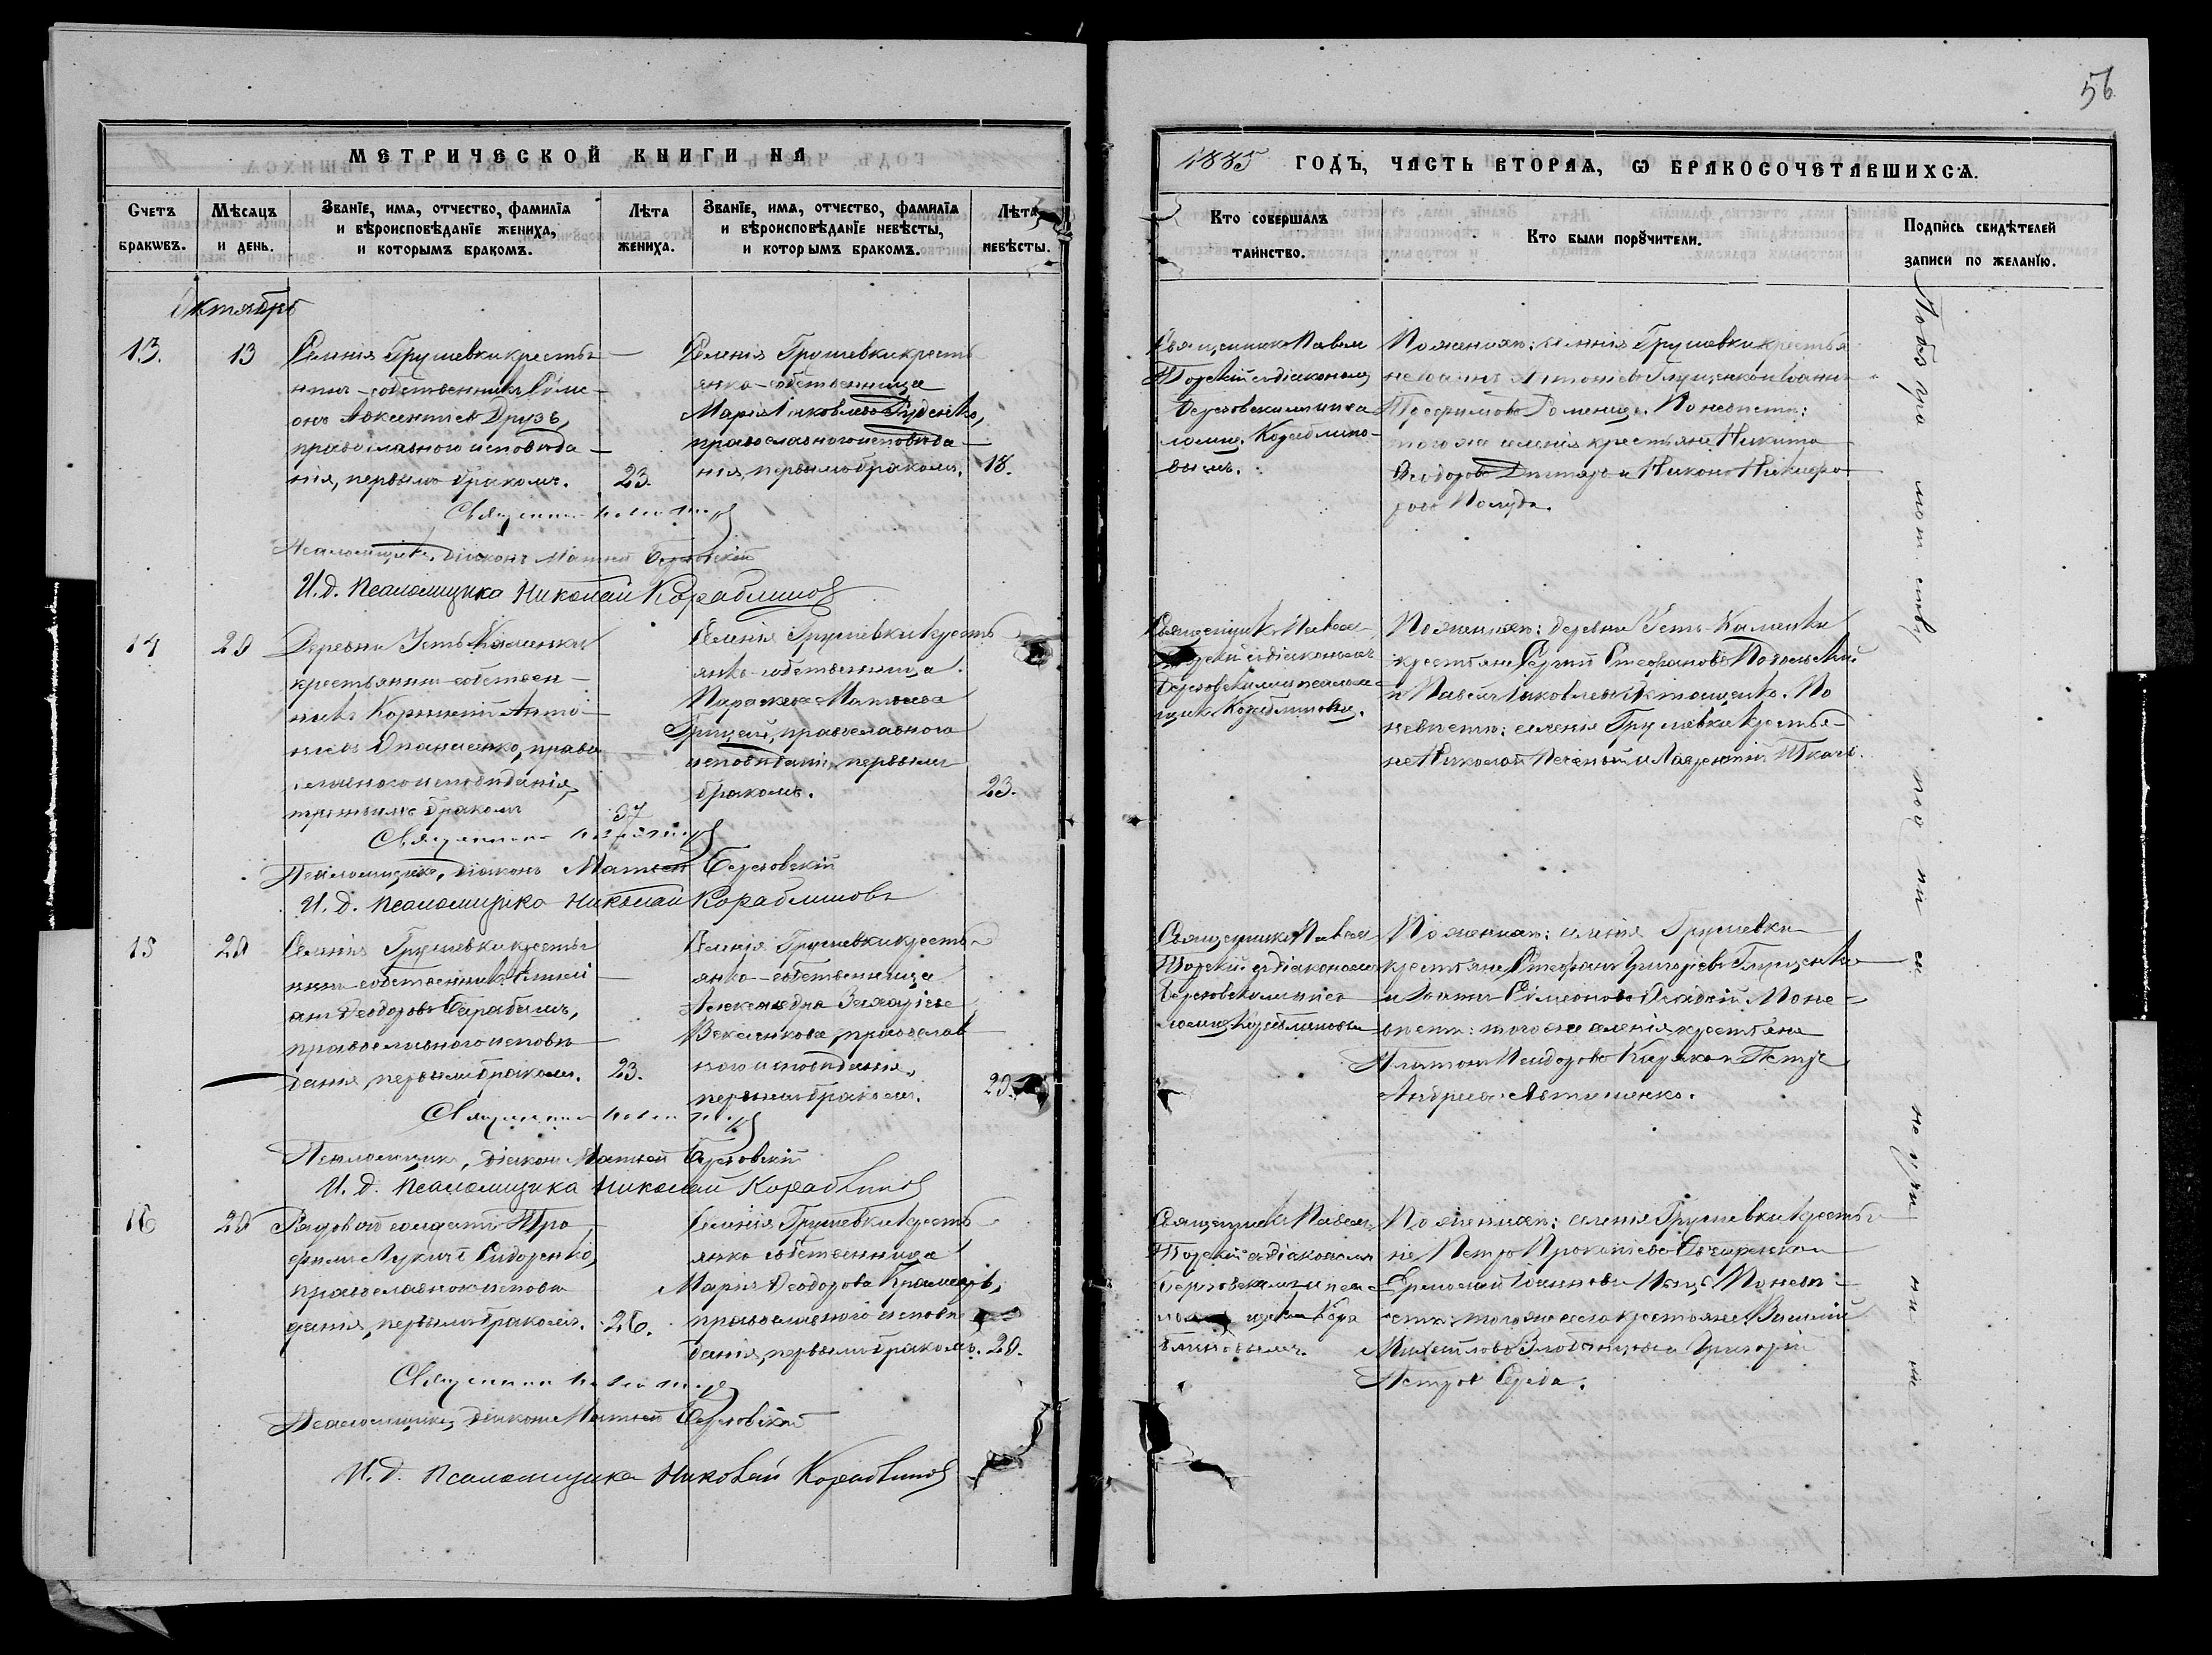 56
МЕТРИЧЕСКОЙ КНИГИ НА
1885 ГОДЪ, ЧАСТЬ ВТОРАѦ, Ѡ БРАКОСОЧЕТАВШИХСѦ.
Счетъ бракѡвъ.
Мѣсяцъ и день.
Званїе, имѧ, отчество, фамилїѧ
и вѣроисповѣданїе жениха,
и которымъ бракомъ.
Лѣта жениха.
Званїе, имѧ, отчество, фамилїѧ
и вѣроисповѣданїе невѣсты,
и которымъ бракомъ.
Лѣта невѣсты.
Кто совершалъ
таинство.
Кто были порꙋчители.
Подпись свидѣтелей
записи по желанїю.
Октябрь
13.
13
Селенія Грушевки крестья-
нинъ-собственникъ Симе-
онъ Авксентіевъ Друзь,
православного исповѣда-
нія, первымъ бракомъ.
23.
Селенія Грушевки кресть
янка-собственница
Марія Іаковлева Руденко,
православного исповѣда-
нія, первымъ бракомъ.
18.
Священникъ Павелъ
Торскій съ діакономъ
Березовскимъ и пса
ломщ. Кораблино-
вымъ.
По женихѣ: селенія Грушевки крестья
не Іоаннъ Антоніевъ Глущенко и Іоаннъ
Трофимовъ Роменецъ. По невѣстѣ:
того же селенія крестьяне Никита
Ѳеодоровъ Дегтярь и Никонъ Никифо-
ровъ Полуда.
Священникъ Павелъ Торскій
Псаломщикъ, діаконъ Матѳей Березовскій
И. д. псаломщика Николай Кораблиновъ
14
20
Деревни Усть-Каменки
крестьянинъ-собствен-
никъ Корнилій Анто-
ніевъ Опанасенко, право
славного исповѣданія,
третьимъ бракомъ
37
Селенія Грушевки кресть
янка-собственница
Параскева Матѳеева
Грицай, православного
исповѣданія, первымъ
бракомъ.
23.
Священникъ Павелъ
Торскій съ діакономъ
Березовскимъ и псалом-
щик. Кораблиновы.
По женихѣ: деревни Усть-Каменки
крестьяне Сергій Стефановъ Подольскій
и Павелъ Іаковлевъ. По
невѣстѣ: селенія Грушевки крестья-
не Николай Печеный и Лаврентій Ткачъ.
Священникъ Павелъ Торскій
Псаломщикъ, діаконъ Матѳей Березовскій
И. д. псаломщика Николай Кораблиновъ
15
20
Селенія Грушевки крестья
нинъ-собственникъ
Ѳеодоровъ Барабашъ,
православного исповѣ-
данія, первымъ бракомъ.
23.
Селенія Грушевки кресть-
янка-собственница
Александра Захаріева
Векленкова, православ-
ного исповѣданія,
первымъ бракомъ.
20.
Священникъ Павелъ
Торскій съ діакономъ
Березовскимъ и пса
ломщ. Кораблиновы
По женихѣ: селенія Грушевки
крестьяне Стефанъ Григоріевъ Глущенко
и Симеоновъ. По не-
вѣстѣ: того же селенія крестьяне
Платонъ Исидоровъ Кирякъ и Петръ
Андреевъ Автименко.
Священникъ Павелъ Торскій
Псаломщикъ, діаконъ Матѳей Березовскій
И. д. псаломщика Николай Кораблиновъ
16
20
Рядовой солдатъ Тро
фимъ Лукичъ Сидоренко,
православного исповѣ
данія, первымъ бракомъ.
26.
Селенія Грушевки кресть
янка собственница
Марія Ѳеодорова Крамарь,
православного исповѣ
данія, первымъ бракомъ.
20.
Священникъ Павелъ
Торскій съ діакономъ
Березовскимъ и пса
Кора
блиновымъ.
По женихѣ: селенія Грушевки крестья
не Петръ Прокопіевъ Овчаренко и
Ермолай Іоанновъ. По невѣ-
стѣ: того же села крестьяне Василій
Михаиловъ и Григорій
Петровъ Середа.
Священникъ Павелъ Торскій
Псаломщикъ, діаконъ Матѳей Березовскій
И. д. псаломщика Николай Кораблиновъ